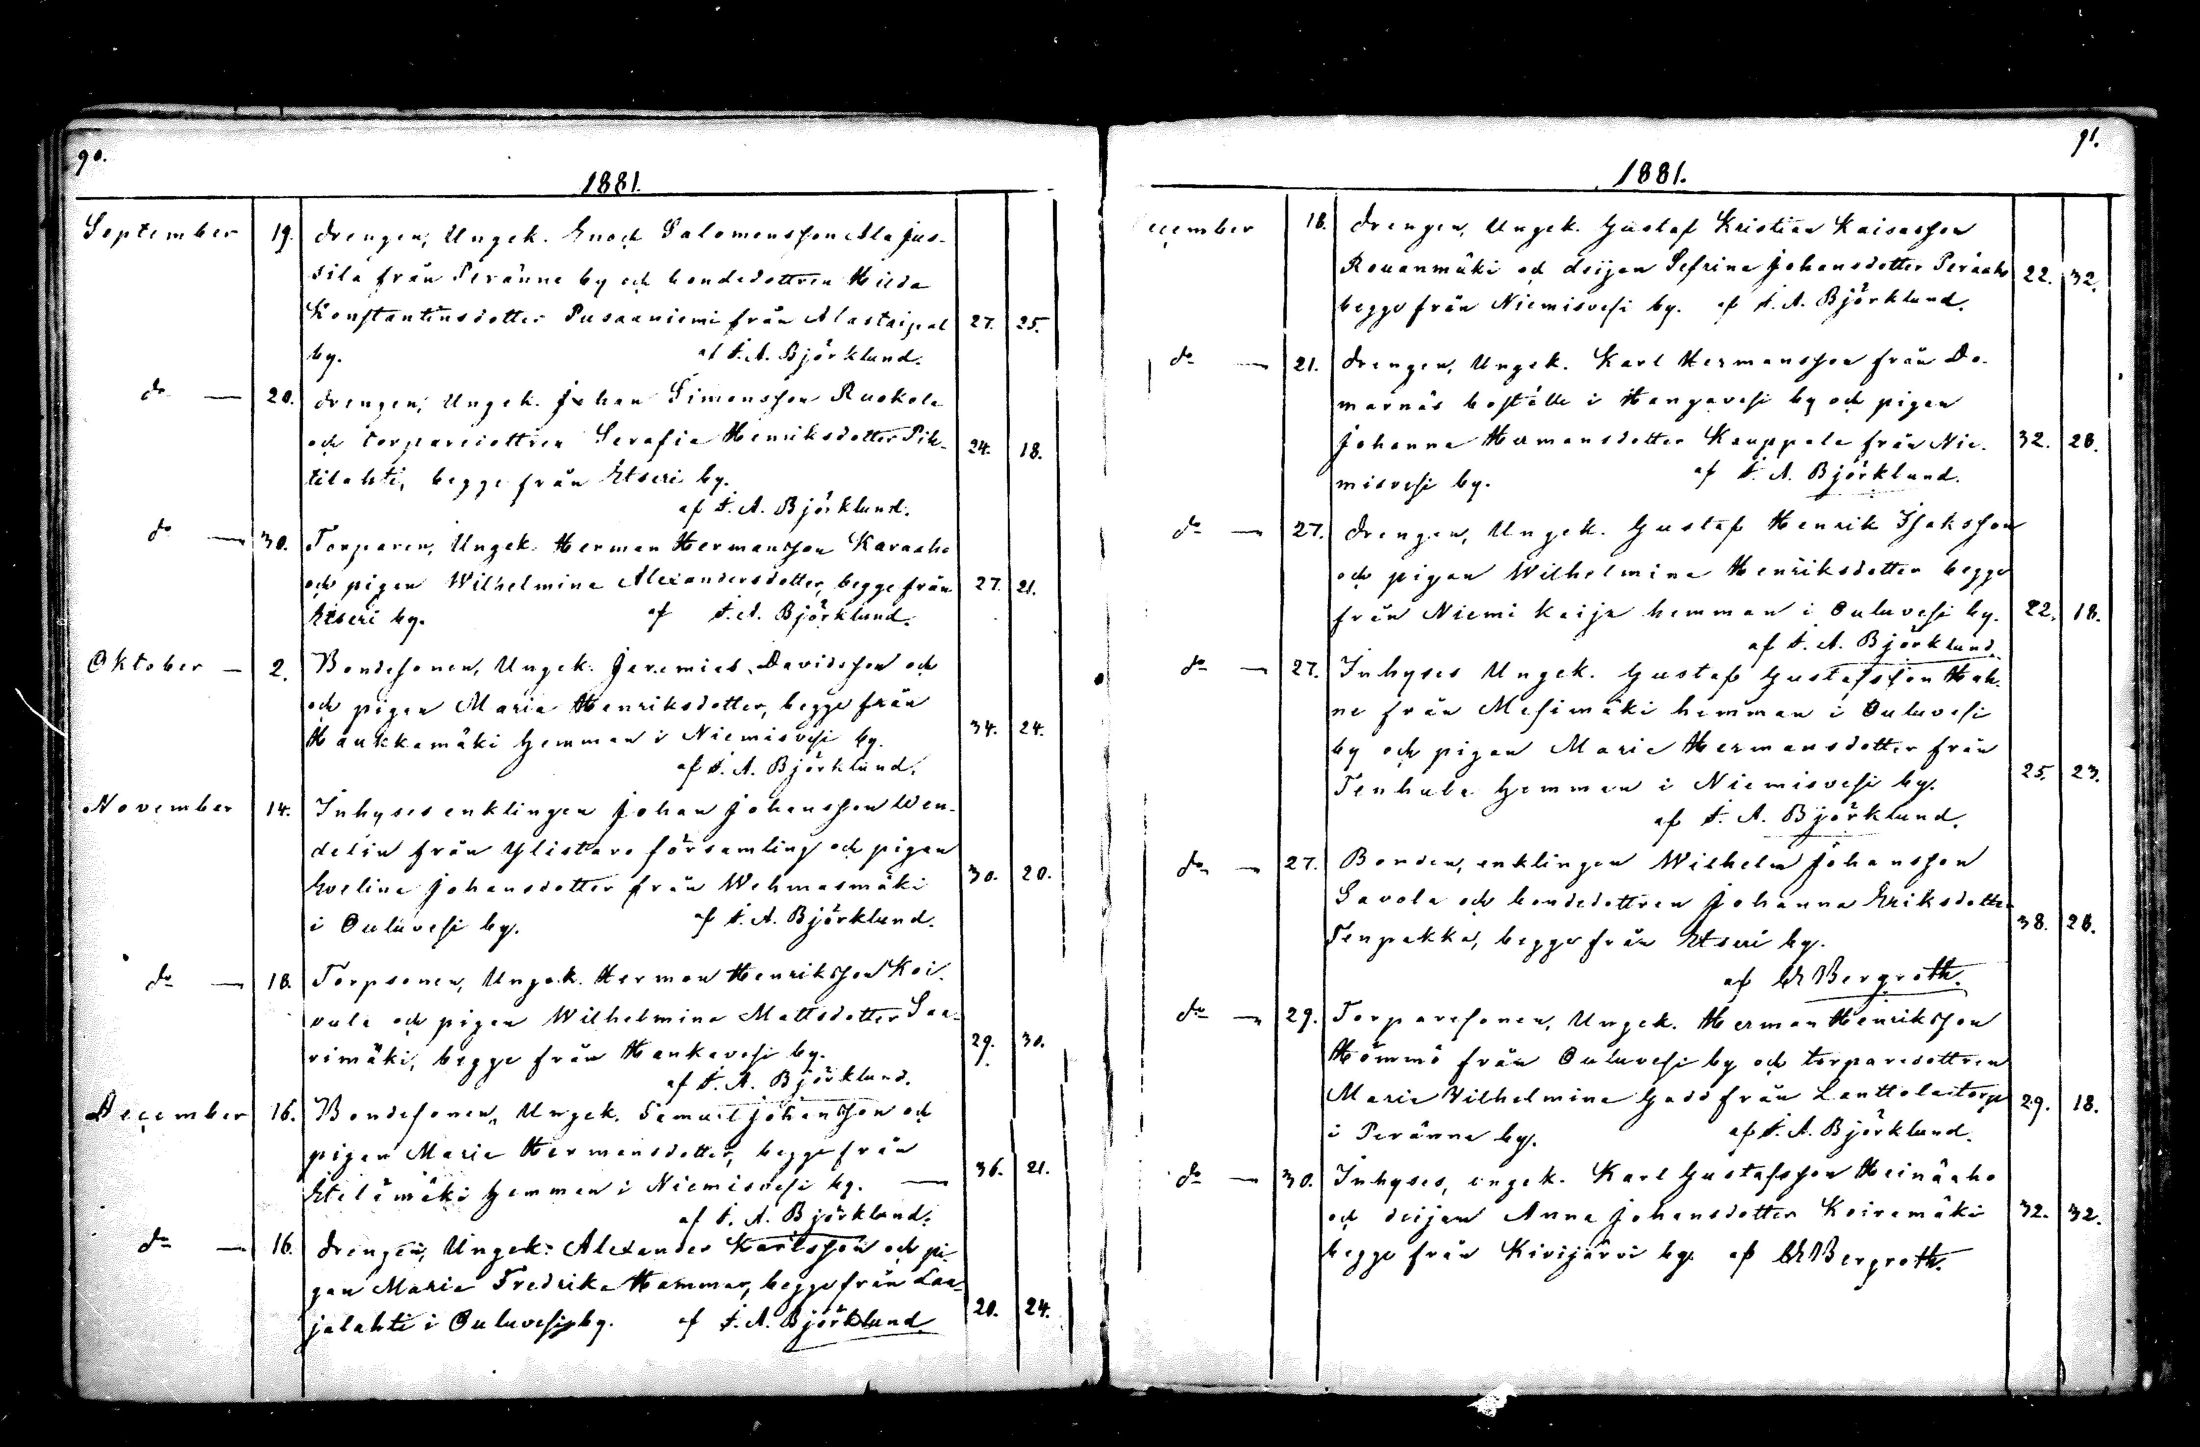 90.
1881.
September 19. Drengen, Ungek. Enoch Salomonsson Ala Jus-
sila från Peränne by och bondedottren Hilda
Konstantinsdotter Pusaaniemi från Alastaipal 27. 25.
by. af F. A. Björklund.
do — 20. Drengen, Ungek. Johan Simonsson Ruokola
och torparedottren Serafia Henriksdotter Pih-
24. 18.
tilahti, begge från Etseri by.
af F. A. Björklund.
do — 30. Torparen, Ungek. Herman Hermansson Karaaho
och pigan Wilhelmina Alexandersdotter, begge från 27. 21.
Etseri by. af F. A. Björklund.
Oktober — 2. Bondesonen, Ungek. Jeremias Davidsson och
och pigan Maria Henriksdotter, begge från
Haukkamäki hemman i Niemisvesi by. 34. 24.
af F. A. Björklund.
November 14. Inhyses enklingen Johan Johansson Wen-
delin från Ylistaro församling och pigan
Evelina Johansdotter från Wehmasmäki 30. 20.
i Ouluvesi by. af F. A. Björklund.
do — 18. Torpsonen, Ungek. Herman Henriksson Koi-
vula och pigan Wilhelmina Mattsdotter Saa-
rimäki, begge från Hankavesi by. 29. 30.
af F. A. Björklund.
December 16. Bondesonen, Ungek. Samuel Johansson och
pigan Maria Hermansdotter, begge från
Etelämäki hemman i Niemisvesi by. — 36. 21.
af F. A. Björklund.
do — 16. Drengen, Ungek. Alexander Karlsson och pi-
gan Maria Fredrika Hammar, begge från Laa-
jalahti i Ouluvesi by. af F. A. Björklund 20. 24.
91.
1881.
ecember 18. Drengen, Ungek. Gustaf Kristian Kaisasson
Rouanmäki och deijan Sefrina Johansdotter Peräaho 22. 32.
begge från Niemisvesi by. af F. A. Björklund.
do — 21. Drengen, Ungek. Karl Hermansson från Do-
marnäs boställe i Hangavesi by och pigan
Johanna Hermansdotter Kauppala från Nie- 32. 28.
misvesi by. af F. A. Björklund.
do — 27. Drengen, Ungek. Gustaf Henrik Isaksson
och pigan Wilhelmina Henriksdotter begge
från Niemi Keija hemman i Ouluvesi by. 22. 18.
af F. A. Björklund.
do — 27. Inhyses Ungek. Gustaf Gustafsson Hah-
ne från Mesimäki hemman i Ouluvesi
by och pigan Maria Hermansdotter från
Tenhula hemman i Niemisvesi by. 25. 23.
af F. A. Björklund.
do — 27. Bonden, enklingen Wilhelm Johansson
Savola och bondedottren Johanna Eriksdotter
Tenpakka, begge från Etseri by. 38. 28.
af Bergroth.
do — 29. Torparesonen, Ungek. Herman Henriksson
Hömmö från Ouluvesi by och torparedottren
Maria Vilhelmina Gadd från Lanttola torp 29. 18.
i Peränne by. af F. A. Björklund.
do — 30. Inhyses, ungek. Karl Gustafsson Heinäaho
och deijan Anna Johansdotter Koiramäki 32. 32.
begge från Kivijärvi by. af Bergroth.